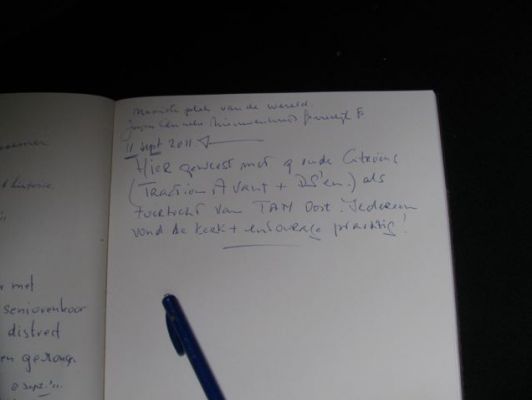 Mooiste plek van de wereld.
11 sept 2011
Hier geweest met 9 oude Citroëns
(Traction Avant + DS'en) als
toertocht van TAN Oost. Iedereen
vond de kerk + entourage prachtig!
historie,
met
seniorenkoor
distred
en
8 sept. '11.